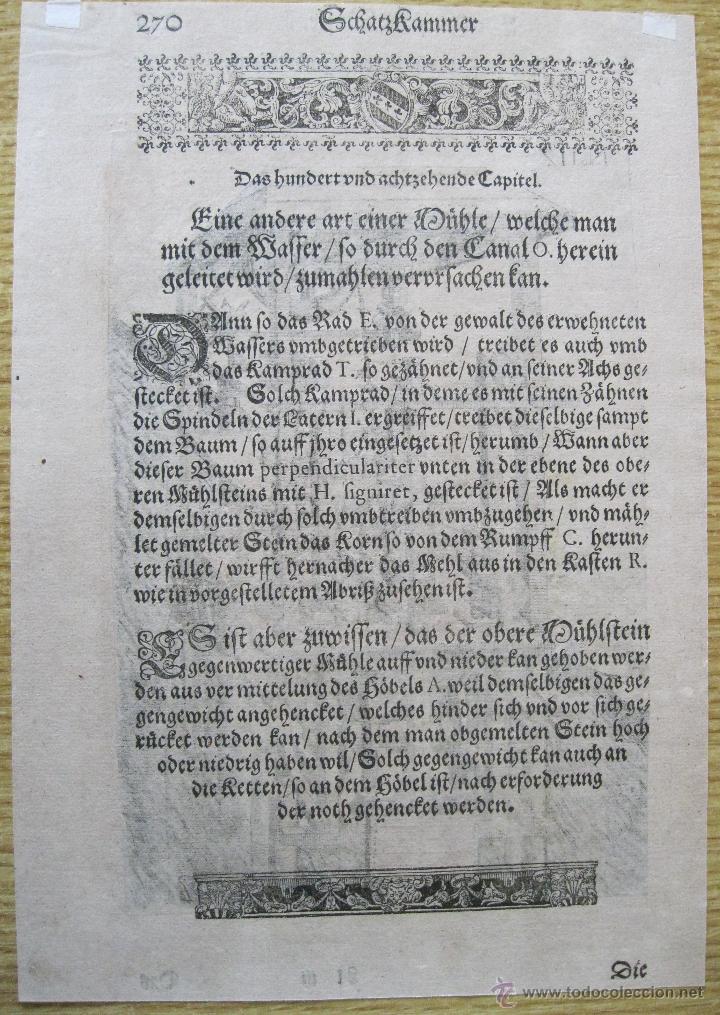 270 SchatzKammer
Das hundert vnd achtzehende Capitel.
Eine andere art einer Mühle / welche man
mit dem Wasser / so durch den Canal O. herein
geleitet wird / zumahlen vervrsachen kan.
DAnn so das Rad E. von der gewalt des erwehneten
Wassers vmbgetrieben wird / treibet es auch vmb
das Kamprad T. so gezähnet / vnd an seiner Achs ge-
stecket ist. Solch Kamprad / in deme es mit seinen Zähnen
die Spindeln der Latern I. ergreiffet / treibet dieselbige sampt
dem Baum / so auff jhro eingesetzet ist / herumb / Wann aber
dieser Baum perpendiculariter vnten in der ebene des obe-
ren Mühlsteins mit H. figuiret, gestecket ist / Als macht er
demselbigen durch solch vmbtreiben vmbzugehen / vnd mäh-
let gemelter Stein das Korn so von dem Rumpff C. herun-
ter fället / wirfft hernacher das Mehl aus in den Kasten R.
wie in vorgestelletem Abriß zusehen ist.
ES ist aber zuwissen / das der obere Mühlstein
gegenwertiger Mühle auff vnd nieder kan gehoben wer-
den aus vermittelung des Höbels A. weil demselbigen das ge-
gengewicht angehencket / welches hinder sich vnd vor sich ge-
rücket werden kan / nach dem man obgemelten Stein hoch
oder niedrig haben wil / Solch gegengewicht kan auch an
die Ketten / so an dem Höbel ist / nach erforderung
der noth gehencket werden.
Die
www.todocoleccion.net